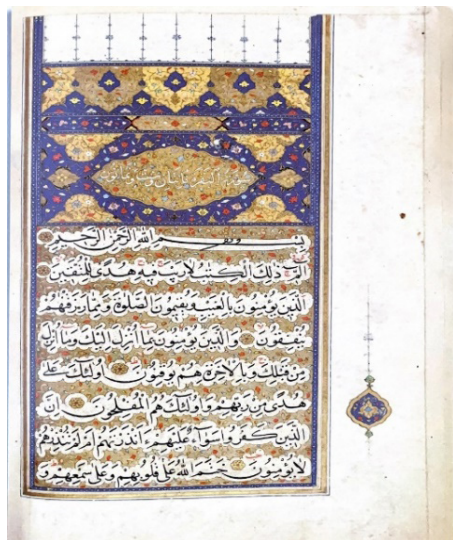 سورة البقرة
بِسْمِ اللهِ الرَّحْمٰنِ الرَّحِيمِ
الم ذٰلِكَ الْكِتٰبُ لَا رَيْبَ فِيهِ هُدًى لِلْمُتَّقِينَ
الَّذِينَ يُؤْمِنُونَ بِالْغَيْبِ وَيُقِيمُونَ الصَّلٰوةَ وَمِمَّا رَزَقْنٰهُمْ
يُنْفِقُونَ وَالَّذِينَ يُؤْمِنُونَ بِمَا أُنْزِلَ إِلَيْكَ وَمَا أُنْزِلَ
مِنْ قَبْلِكَ وَبِالْاٰخِرَةِ هُمْ يُوقِنُونَ أُولٰئِكَ عَلٰى
هُدًى مِنْ رَبِّهِمْ وَأُولٰئِكَ هُمُ الْمُفْلِحُونَ إِنَّ
الَّذِينَ كَفَرُوا سَوَاءٌ عَلَيْهِمْ ءَأَنْذَرْتَهُمْ أَمْ لَمْ تُنْذِرْهُمْ
لَا يُؤْمِنُونَ خَتَمَ اللهُ عَلٰى قُلُوبِهِمْ وَعَلٰى سَمْعِهِمْ وَ